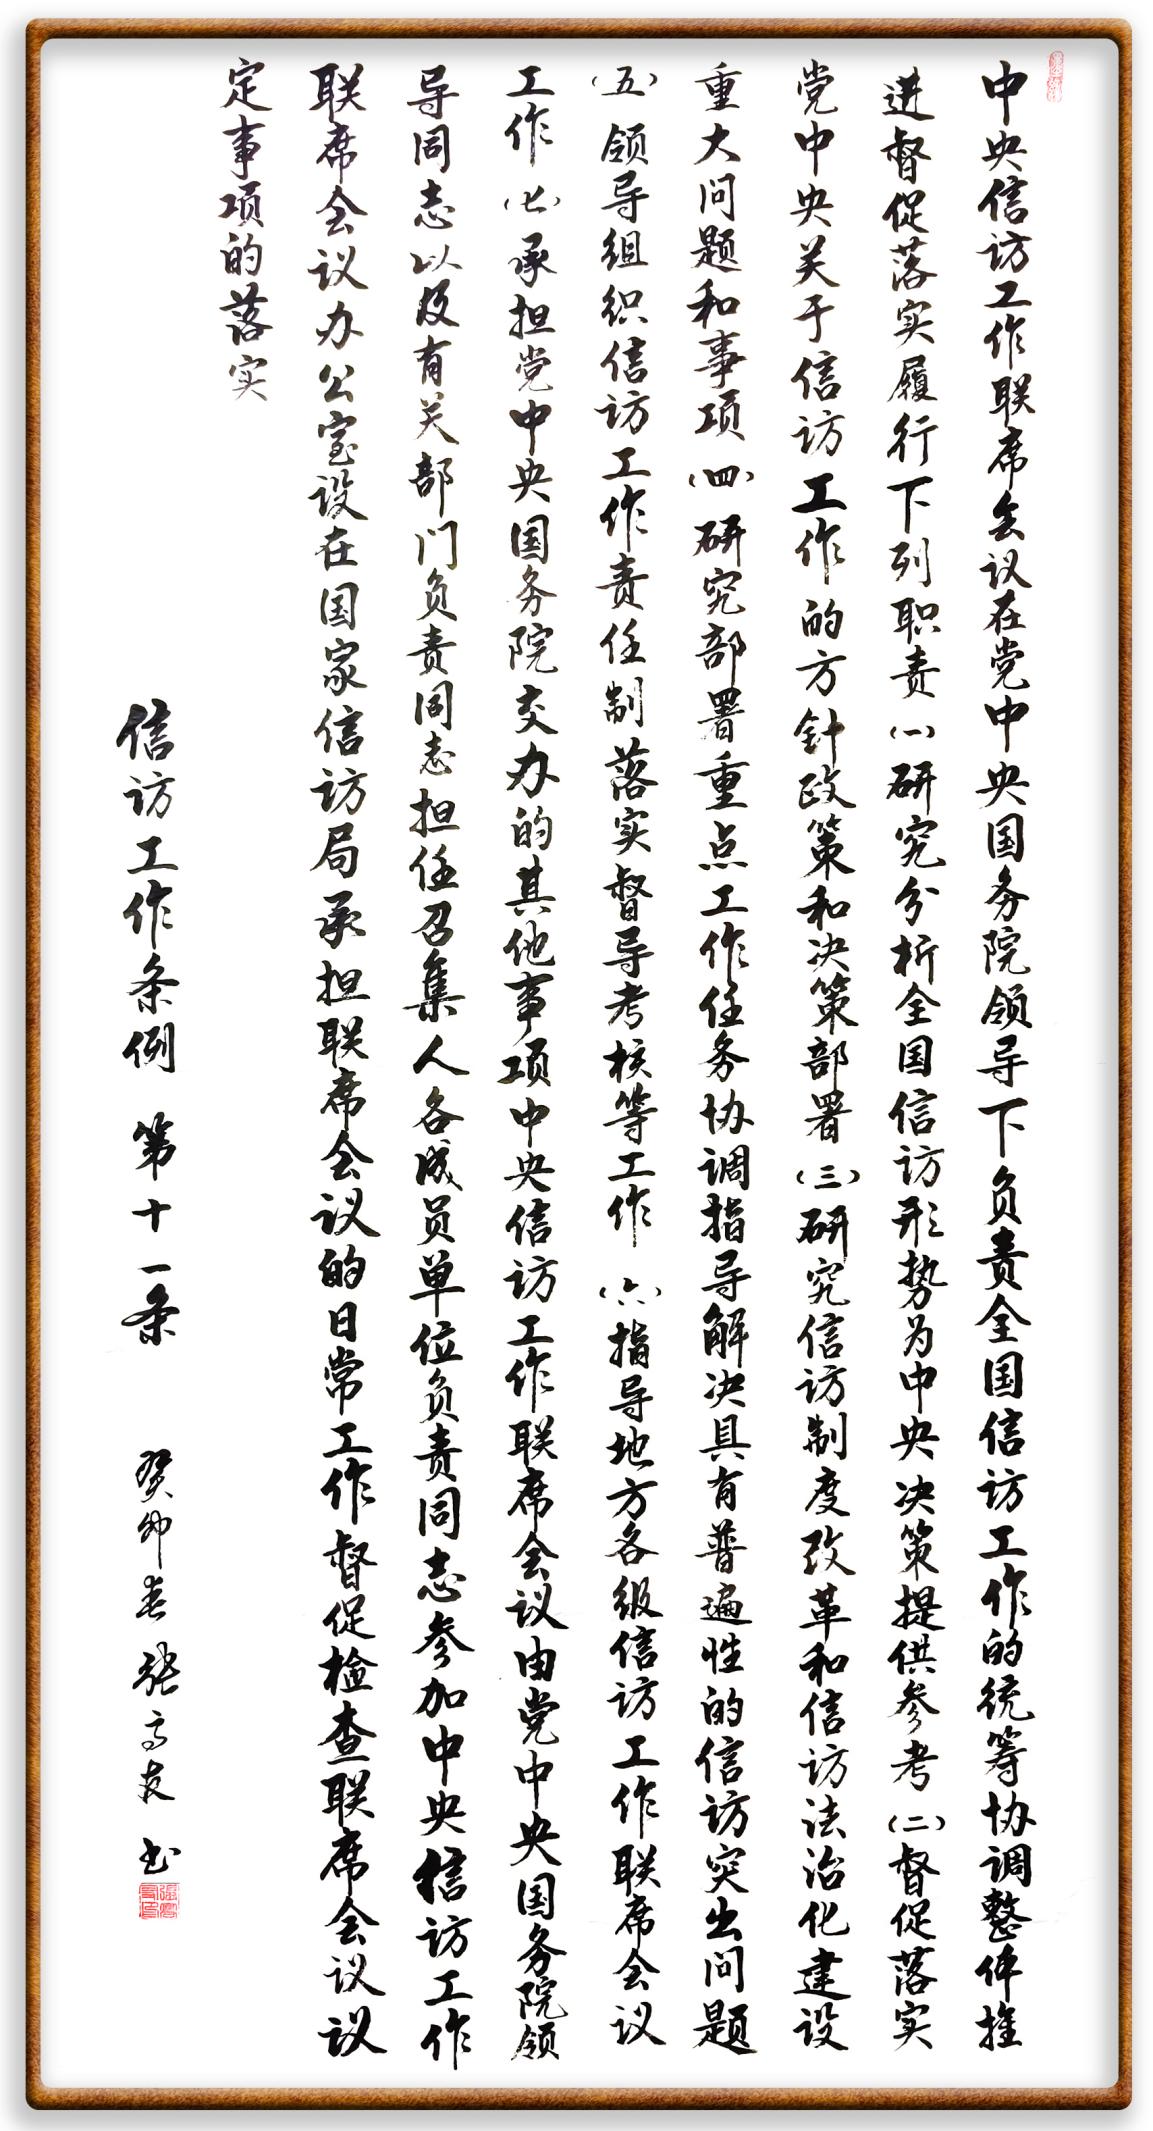 中央信访工作联席会议在党中央国务院领导下负责全国信访工作的统筹协调整体推
进督促落实履行下列职责(一)研究分析全国信访形势为中央决策提供参考(二)督促落实
党中央关于信访工作的方针政策和决策部署(三)研究信访制度改革和信访法治化建设
重大问题和事项(四)研究部署重点工作任务协调指导解决具有普遍性的信访突出问题
(五)领导组织信访工作责任制落实督导考核等工作(六)指导地方各级信访工作联席会议
工作(七)承担党中央国务院交办的其他事项中央信访工作联席会议由党中央国务院领
导同志以及有关部门负责同志担任召集人各成员单位负责同志参加中央信访工作
联席会议办公室设在国家信访局承担联席会议的日常工作督促检查联席会议议
定事项的落实
信访工作条例 第十一条 癸卯春 张高友 书